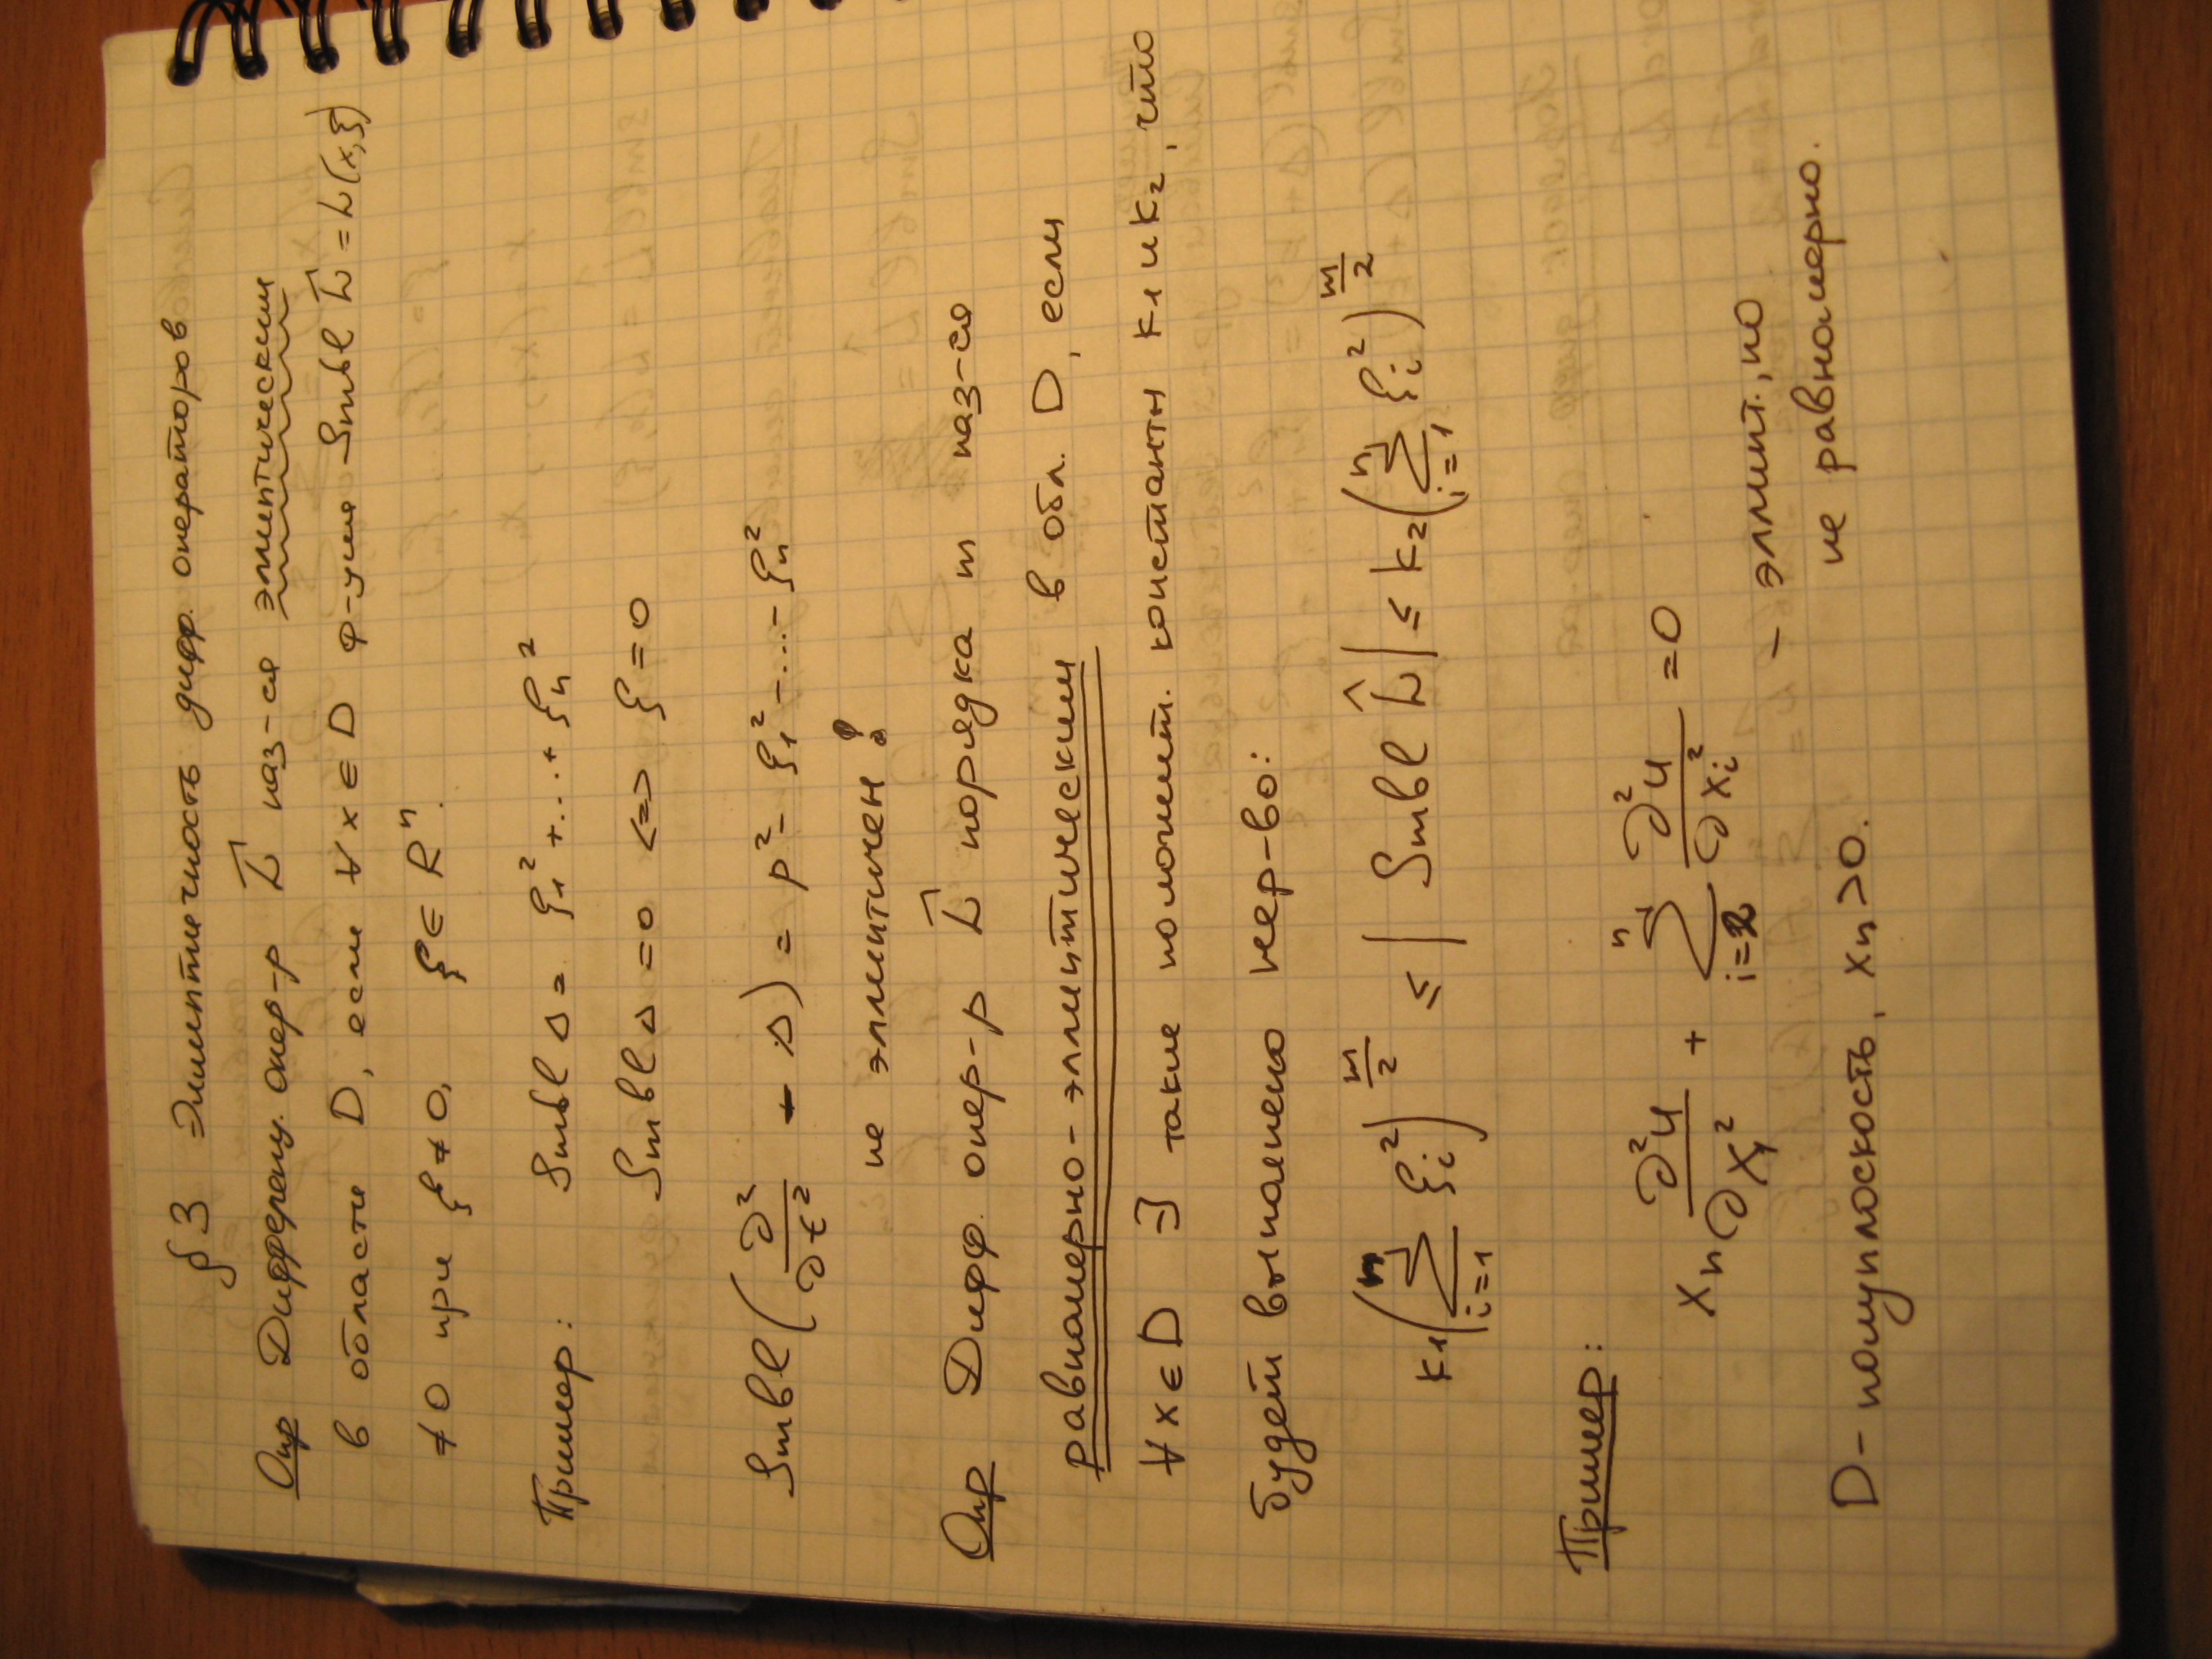 §3 Эллиптичность дифф. операторов
Опр Дифференц. опер-р L̂ наз-ся эллептическим
в области D, если ∀ x ∈ D ф-ция Smbl L̂ = L(x,ξ)
≠0 при ξ≠0, ξ∈Rⁿ.
Пример: Smbl Δ = ξ₁² + ... + ξₙ²
Smbl Δ = 0 <=> ξ = 0
Smbl (∂²/∂t² - Δ) = p² - ξ₁² - ... - ξₙ²
не эллиптичен!
Опр Дифф. опер-р L̂ порядка m наз-ся
равномерно-эллиптическим в обл. D, если
∀ x ∈ D ∃ такие положит. константы k₁ и k₂, что
будет выполнено нер-во:
k₁(∑ⁿᵢ₌₁ ξᵢ²)^(m/2) ≤ | Smbl L̂ | ≤ k₂(∑ⁿᵢ₌₁ ξᵢ²)^(m/2)
Пример: xₙ ∂²u/∂x₁² + ∑ⁿᵢ₌₂ ∂²u/∂xᵢ² = 0
- эллипт., но
не равномерно.
D - полуплоскость, xₙ>0.